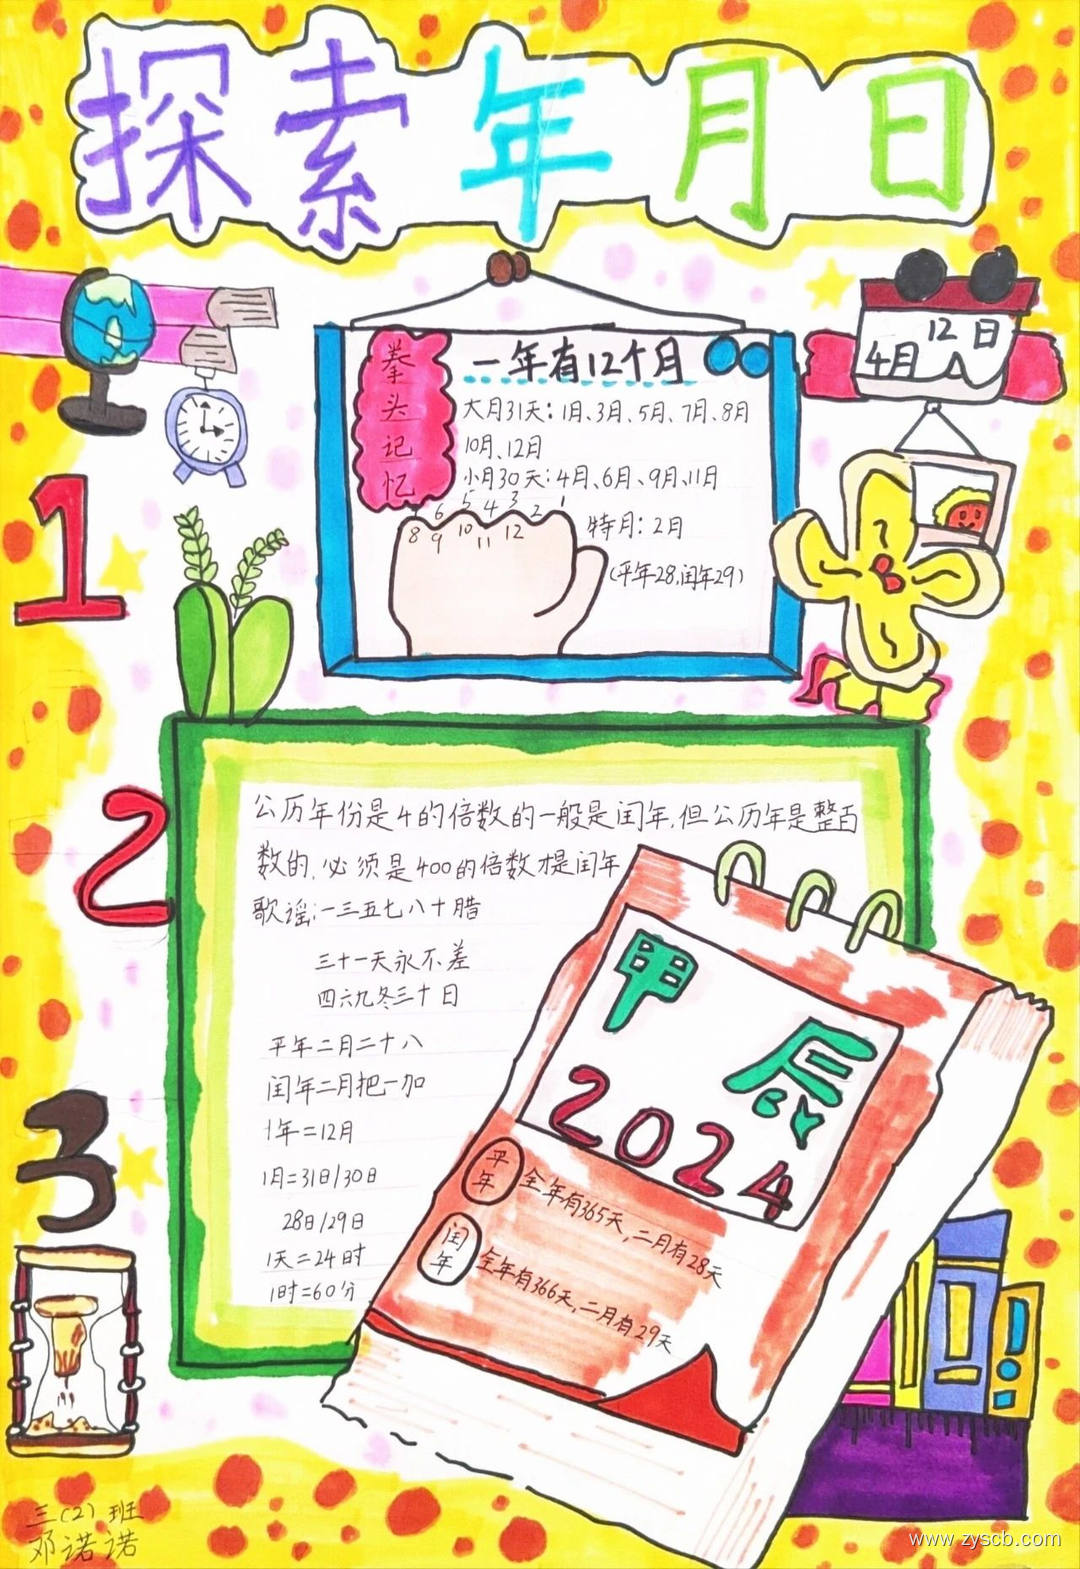 探索年月日
拳头记忆
一年有12个月
大月31天：1月、3月、5月、7月、8月
10月、12日
小月30天：4月、6月、9月、11月
特月：2月
(平年28，闰年29)
6 5 4 3 2 1
8 9 10 11 12
12日
4月
1
2
3
公历年份是4的倍数的一般是闰年，但公历年是整百
数的，必须是400的倍数才是闰年
歌谣：一三五七八十腊
三十一天永不差
四六九冬三十日
平年二月二十八
闰年二月把一加
1年=12月
1月=31日/30日
28日/29日
1天=24时
1时=60分
甲辰
2024
平年
全年有365天，二月有28天
闰年
全年有366天，二月有29天
三(2)班
邓诺诺
www.zyscb.com